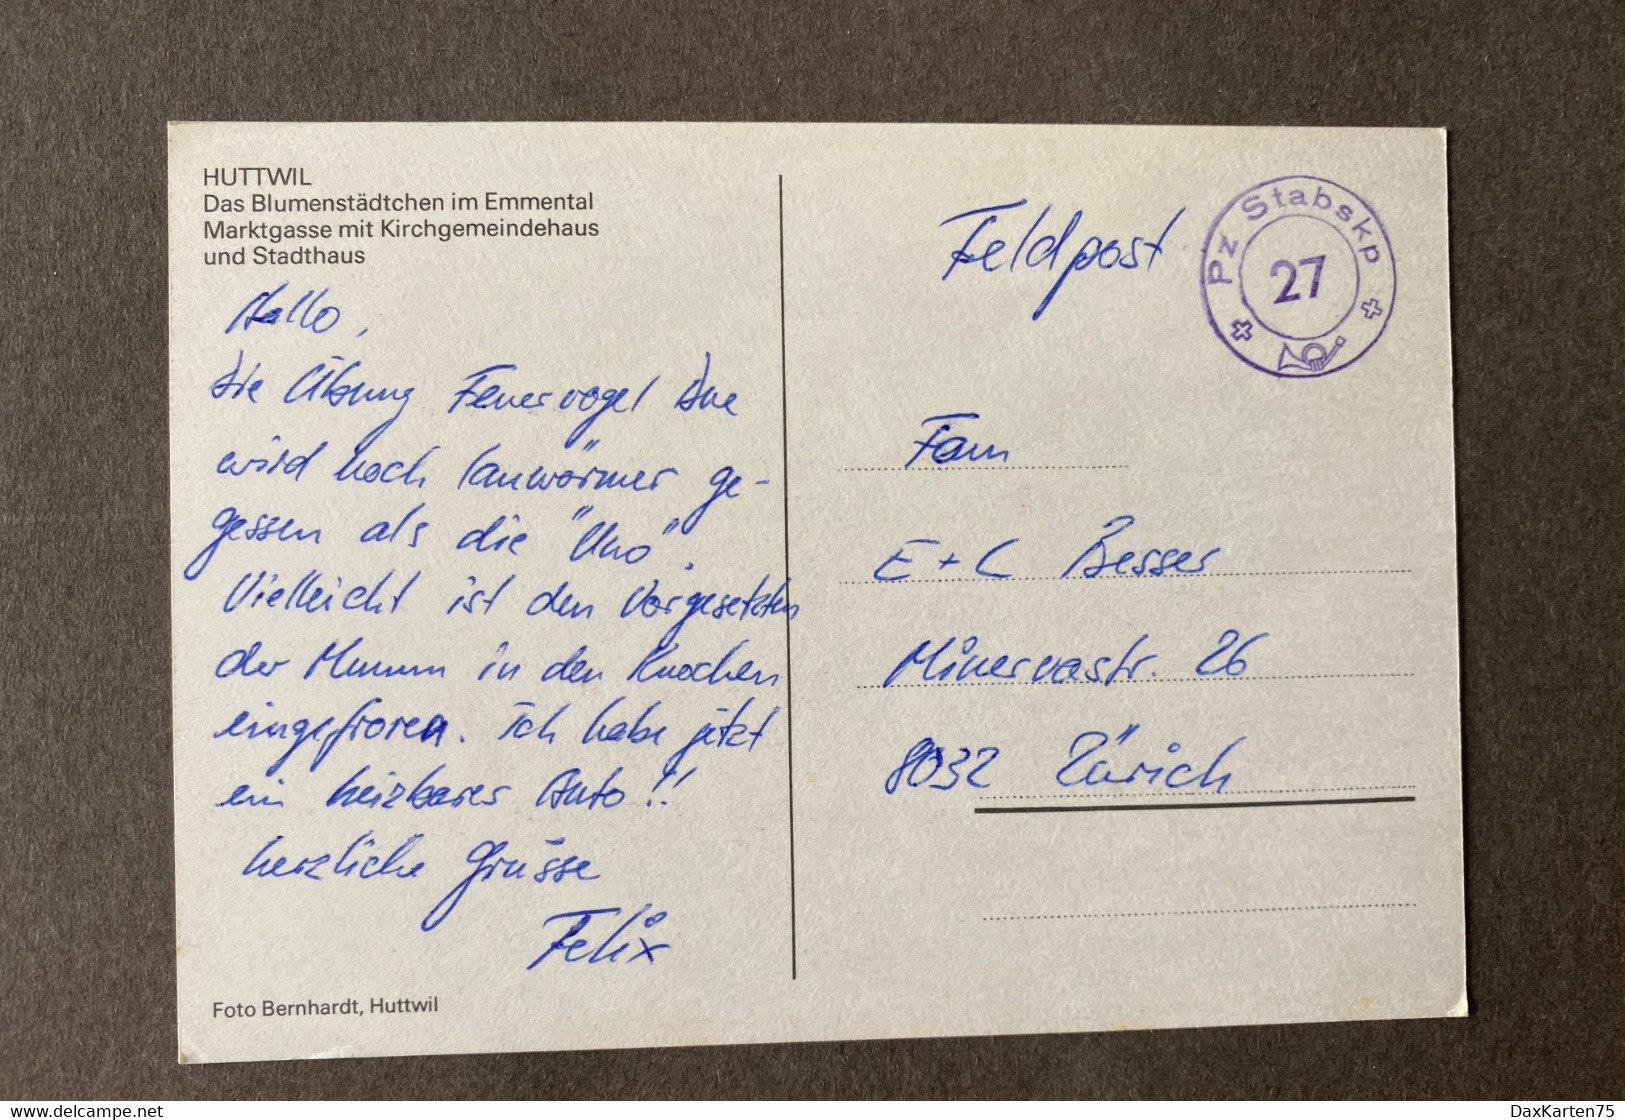 HUTTWIL
Das Blumenstädtchen im Emmental
Marktgasse mit Kirchgemeindehaus
und Stadthaus
Hallo,
die Übung Feuervogel
wird noch lauwärmer ge-
gessen als die "Uno".
Vielleicht ist den Vorgesetzten
der Mumm in den Knochen
eingefroren. Ich habe jetzt
ein heizbares Auto!!
herzliche Grüsse
Felix
Foto Bernhardt, Huttwil
Feldpost
Pz Stabskp
27
Fam
E + C Besser
Minervastr. 26
8032 Zürich
delcampe.net
DaxKarten75